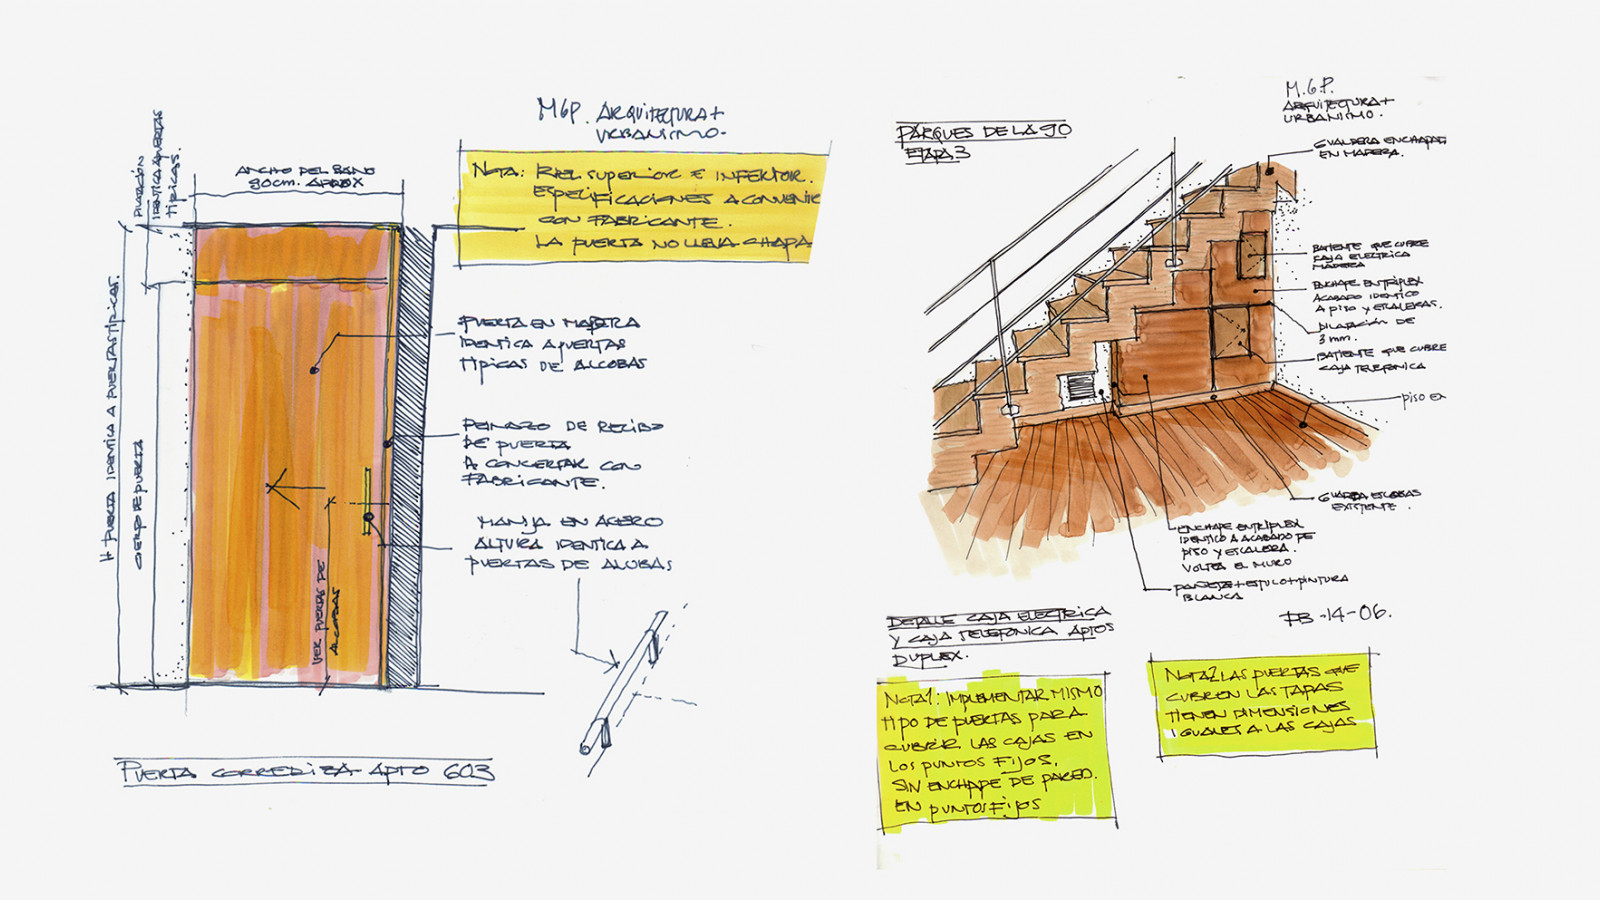 M6P. ARQUITECTURA+
URBANISMO.
NOTA: RIEL SUPERIOR E INFERIOR.
ESPECIFICACIONES A CONVENIR
CON FABRICANTE.
LA PUERTA NO LLEVA CHAPA
DILATACIÓN
IDENTICA A PUERTAS
TÍPICAS.
ANCHO DEL BANO
90cm. APROX
H PUERTA IDENTICA A PUERTAS TIPICAS.
PUERTA
PUERTA EN MADERA
IDENTICA A PUERTAS
TIPICAS DE ALCOBAS
PEINAZO DE RECIBO
DE PUERTA
A CONCERTAR CON
FABRICANTE.
MANIJA EN ACERO
ALTURA IDENTICA A
PUERTAS DE ALCOBAS
VER PUERTAS DE
ALCOBAS
PUERTA CORREDIZA APTO 603
M.G.P.
ARQUITECTURA+
URBANISMO.
PARQUES DE LA 90
ETAPA 3
GUALDERA ENCHAPADA
EN MADERA.
BATIENTE QUE CUBRE
CAJA ELECTRICA
MADERA
ENCHAPE EN TRIPLEX
ACABADO IDENTICO
A PISO Y ESCALERAS.
DILATACIÓN DE
3 mm.
BATIENTE QUE CUBRE
CAJA TELEFONICA
PISO EN
GUARDA ESCOBAS
EXISTENTE.
ENCHAPE EN TRIPLEX
IDENTICO A ACABADO DE
PISO Y ESCALERA.
VOLTEA EL MURO
PAÑETE+ESTUCO+PINTURA
BLANCA.
FB-14-06.
DETALLE CAJA ELECTRICA
Y CAJA TELEFONICA APTOS
DUPLEX.
NOTA1: IMPLEMENTAR MISMO
TIPO DE PUERTAS PARA
CUBRIR LAS CAJAS EN
LOS PUNTOS FIJOS.
SIN ENCHAPE DE PARED.
EN PUNTOS FIJOS
NOTA2 LAS PUERTAS QUE
CUBREN LAS TAPAS
TIENEN DIMENSIONES
IGUALES A LAS CAJAS